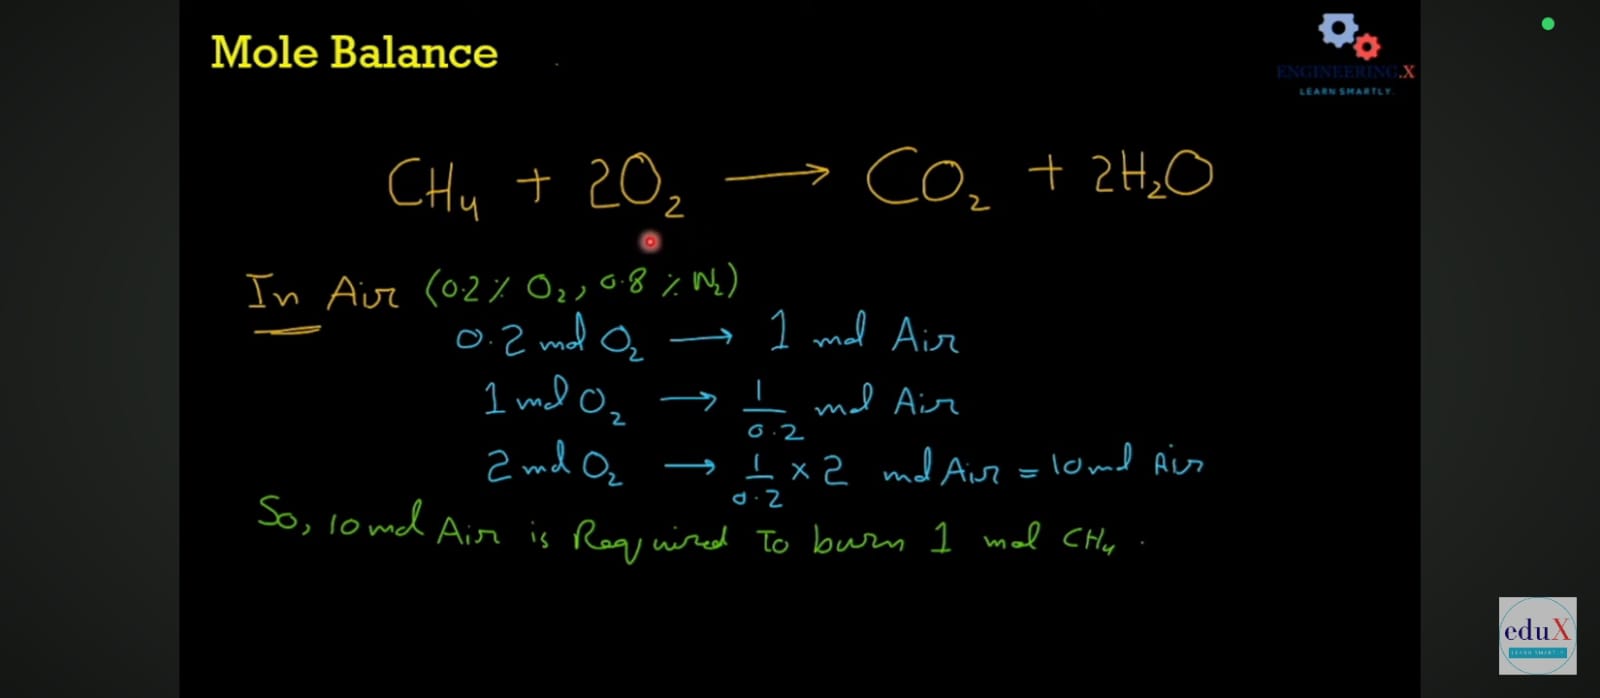 Mole Balance
ENGINEERING.X
LEARN SMARTLY.
CH₄ + 2O₂ → CO₂ + 2H₂O
In Air (0.2% O₂, 0.8% N₂)
0.2 mol O₂ → 1 mol Air
1 mol O₂ → 1/0.2 mol Air
2 mol O₂ → 1/0.2 × 2 mol Air = 10 mol Air
So, 10 mol Air is Required To burn 1 mol CH₄.
eduX
LEARN SMARTLY